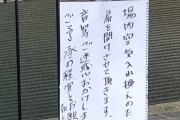 場内空気入れ換えのた
扉を開けさせて頂きます。
音等ご迷惑おかけしま
ご了承の程宜しくお願